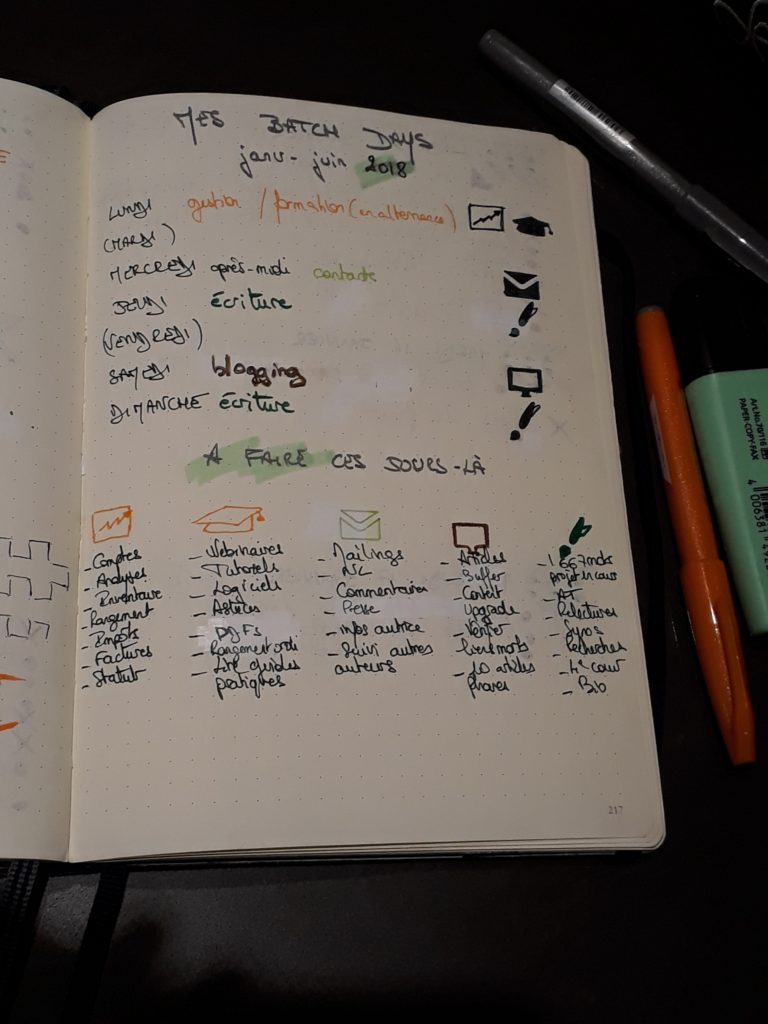 MES BATCH DAYS
janv - juin 2018
LUNDI gestion / formation (en alternance)
(MARDI)
MERCREDI après-midi contacts
JEUDI écriture
(VENDREDI)
SAMEDI blogging
DIMANCHE écriture
A FAIRE CES JOURS-LÀ
- Comptes
- Analyses
- Inventaire
- Rangement
- Impôts
- Factures
- Statut
- Webinaires
- Tutoriels
- Logiciels
- Astuces
- PDFs
- Rangement ordi
- Lire guides
pratiques
- Mailings
- NL
- Commentaires
- Presse
- infos autrice
- Suivi autres
auteurs
- Articles
- Buffer
- Content
Upgrade
- Vérifier
liens morts
- 10 articles
phares
- 1667 mots
projet en cours
- AT
- Relectures
- Synos
- Recherches
- 4e couv
- Bio
217
Art.No.70/116
PAPER-COPY-FAX